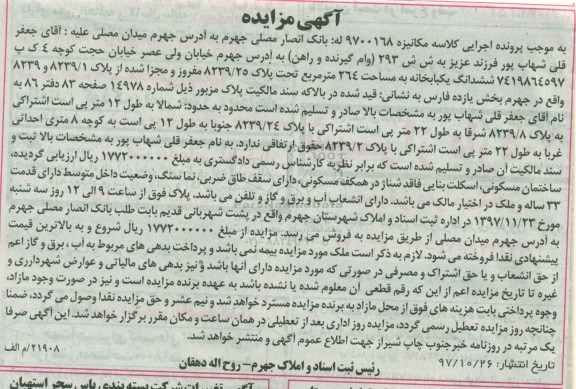 آگهی مزایده
به موجب پرونده اجرایی کلاسه مکانیزه ۹۷۰۰۱۶۸ له: بانک انصار مصلی جهرم به آدرس جهرم میدان مصلی علیه : آقای جعفر
قلی شهاب پور فرزند عزیز به ش ش ۲۹۳ (وام گیرنده و راهن) به آدرس جهرم خیابان ولی عصر خیابان حجت کوچه ٤ ک پ
۷٤۱۹۸٦٤۵۹۷ ششدانگ یکبابخانه به مساحت ۲٦٤ مترمربع تحت پلاک ۸۲۳۹/۲۵ مفروز و مجزا شده از پلاک ۸۲۳۹/۱ و ۸۲۳۹
واقع در جهرم بخش یازده فارس به نشانی: قید شده در بالاکه سند مالکیت پلاک مزبور ذیل شماره ۱٤۹۷۸ صفحه ۸۳ دفتر ۸٦ به
نام آقای جعفر قلی شهاب پور به مشخصات بالا صادر و تسلیم شده است محدود به حدود: شمالا به طول ۱۲ متر پی است اشتراکی
به پلاک ۸۲۳۹/۸ شرقا به طول ۲۲ متر پی است اشتراکی با پلاک ۸۲۳۹/۲٤ جنوبا به طول ۱۲ پی است به کوچه ۸ متری احداثی
غربا به طول ۲۲ متر پی است اشتراکی با پلاک ۸۲۳۹/۲ حقوق ارتفاقی ندارد. به نام جعفر قلی شهاب پور به مشخصات بالا ثبت و
سند مالکیت آن صادر و تسلیم شده است که برابر نظر به کارشناس رسمی دادگستری به مبلغ ۱۷۷۲۰۰۰۰۰۰ ریال ارزیابی گردیده،
ساختمان مسکونی، اسکلت بنایی فاقد شناژ در همکف مسکونی، دارای سقف طاق ضربی، نما سنگ، وضعیت داخل متوسط دارای قدمت
۳۳ ساله و ملک در اختیار مالک می باشد. دارای انشعاب آب و برق و گاز و تلفن می باشد. پلاک فوق از ساعت ۹ الی ۱۲ روز سه شنبه
مورخ ۱۳۹۷/۱۱/۲۳ در اداره ثبت اسناد و املاک شهرستان جهرم واقع در پشت شهربانی قدیم بابت طلب بانک انصار مصلی جهرم
به آدرس جهرم میدان مصلی از طریق مزایده به فروش می رسد. مزایده از مبلغ ۱۷۷۲۰۰۰۰۰۰ ریال شروع و به بالاترین قیمت
پیشنهادی نقدا فروخته می شود. لازم به ذکر است ملک مورد مزایده بیمه نمی باشد و پرداخت بدهی های مربوط به آب، برق و گاز اعم
از حق انشعاب و یا حق اشتراک و مصرفی در صورتی که مورد مزایده دارای آنها باشد و نیز بدهی های مالیاتی و عوارض شهرداری و
غیره تا تاریخ مزایده اعم از این که رقم قطعی آن معلوم شده یا نشده باشد به عهده برنده مزایده است و نیز در صورت وجود مازاد،
وجوه پرداختی بابت هزینه های فوق از محل مازاد به برنده مزایده مسترد خواهد شد و نیم عشر و حق مزایده نقدا وصول می گردد، ضمنا
چنانچه روز مزایده تعطیل رسمی گردد، مزایده روز اداری بعد از تعطیلی در همان ساعت و مکان مقرر برگزار خواهد شد. این آگهی صرفا
یک مرتبه در روزنامه خبرجنوب چاپ شیراز جهت اطلاع عموم آگهی و منتشر خواهد شد.
تاریخ انتشار: ۹۷/۱۰/۲٦
۲۱۹۰۸/م الف
رئیس ثبت اسناد و املاک جهرم- روح اله دهقان